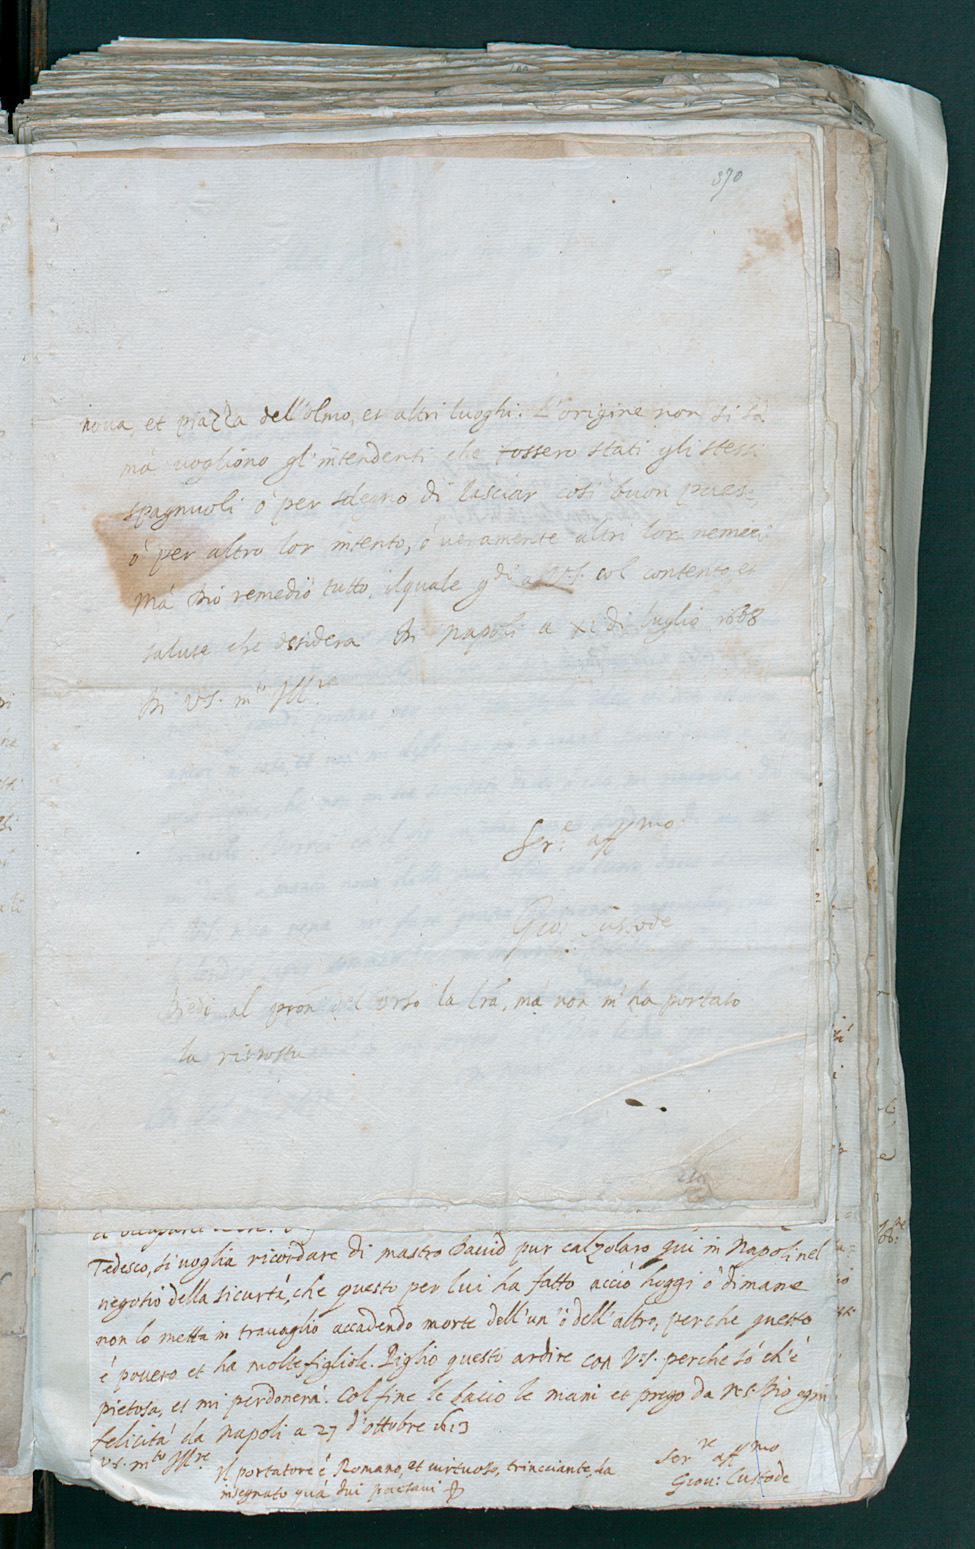 370
noua, et piazza dell'olmo, et altri luoghi. L'origine non si sà
mà uogliono gl'intendenti che fossero stati gli stessi
spagnuoli ò per sdegno di lasciar così buon paese
ò per altro lor intento, ò ueramente altri lor nemeci
Mà Dio remedió tutto, ilquale g.di a V.S. col contento, et
salute che desidera Di Napoli a XI di luglio 1608
Di V.S. m.to Ill.re
Ser.e aff.mo
Gio: Custode
Diedi al del Orso la lrã, mà non m'ha portato
la risposta
Tedesco, si uoglia ricordare di mastro Dauid pur calzolaro qui in Napoli nel
negotio della sicurtà, che questo per lui ha fatto acciò hoggi ò dimane
non lo metta in trauaglio accadendo morte dell'un' ò dell'altro, perche questo
è pouero et ha molte figliole. Piglio questo ardire con V.S. perche sò ch'è
pietosa, et mi perdonerà. Col fine le bacio le mani et prego da N.S. Dio ogni
felicità da Napoli a 27 d'ottobre 1613
V.S. m.to Ill.re
Il portatore è Romano, et uirtuoso, trinciante, ha
insegnato quà dui paesani
Ser.re aff.mo
Giou: Custode